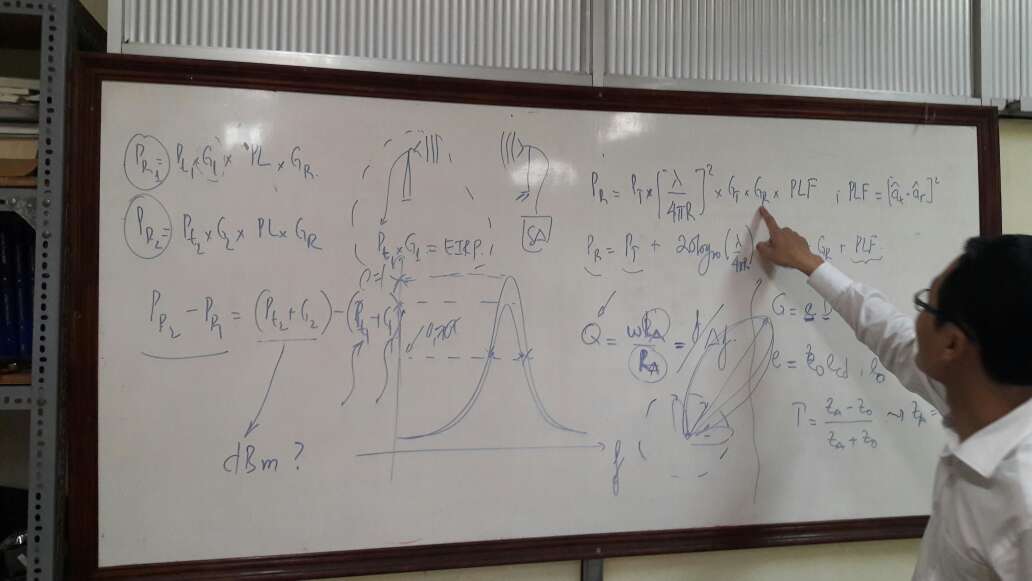 P_R1 = P_t1 × G_1 × PL × G_R.
P_R2 = P_t2 × G_2 × PL × G_R
P_R2 - P_R1 = (P_t2 + G_2) - (P_t1 + G_1)
dBm ?
SA
P_t1 × G_1 = EIRP.
f
P_R = P_T × [λ/4πR]^2 × G_T × G_R × PLF ; PLF = [â_t · â_r]^2
P_R = P_T + 20log_10 (λ/4πR) G_R + PLF.
Q = ω L_A / R_A = f / Δf.
G = e
e = e_0 e_cd ,
Γ = Z_A - Z_0 / Z_A + Z_0 ⇝ Z_A =